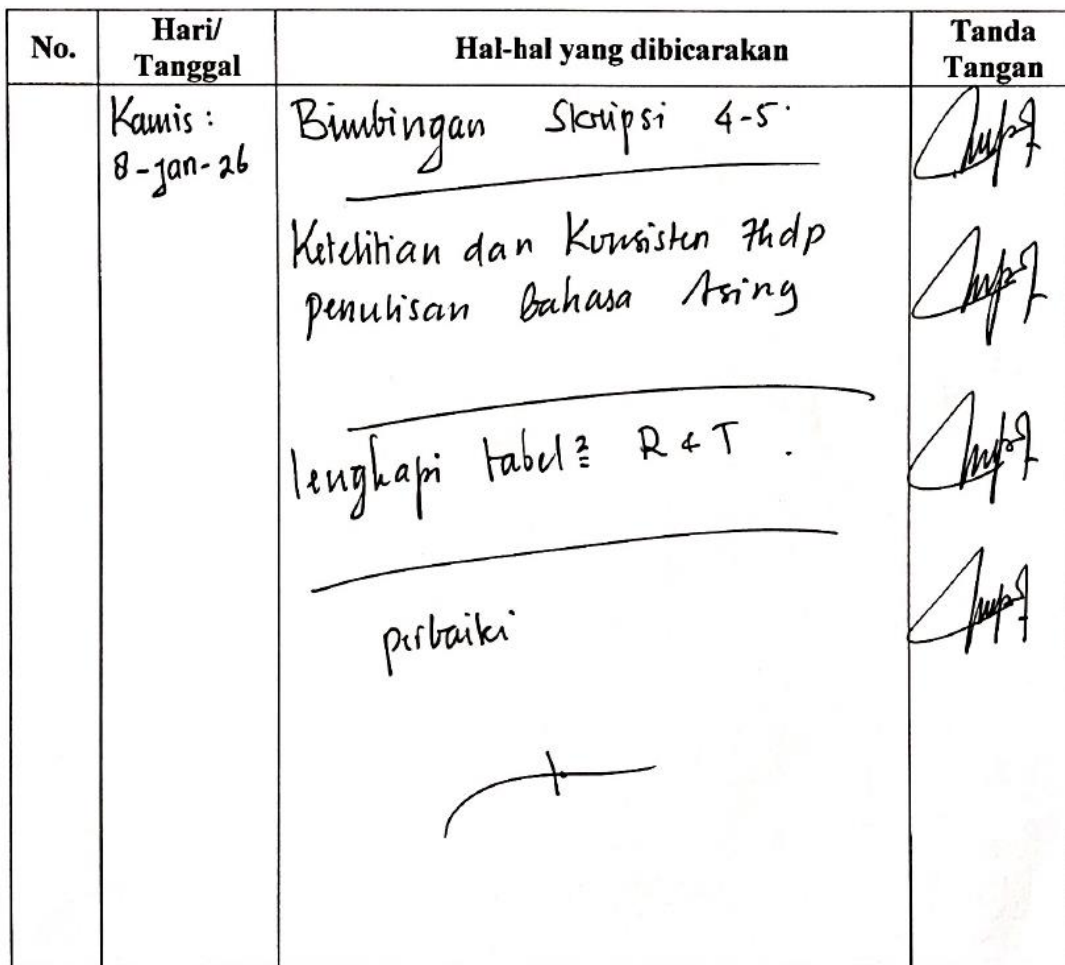 No.
Hari/
Tanggal
Hal-hal yang dibicarakan
Tanda
Tangan
Kamis :
8-jan-26
Bimbingan Skripsi 4-5
Ketelitian dan Konsisten thdp
penulisan bahasa Asing
lengkapi tabel² R & T .
perbaiki